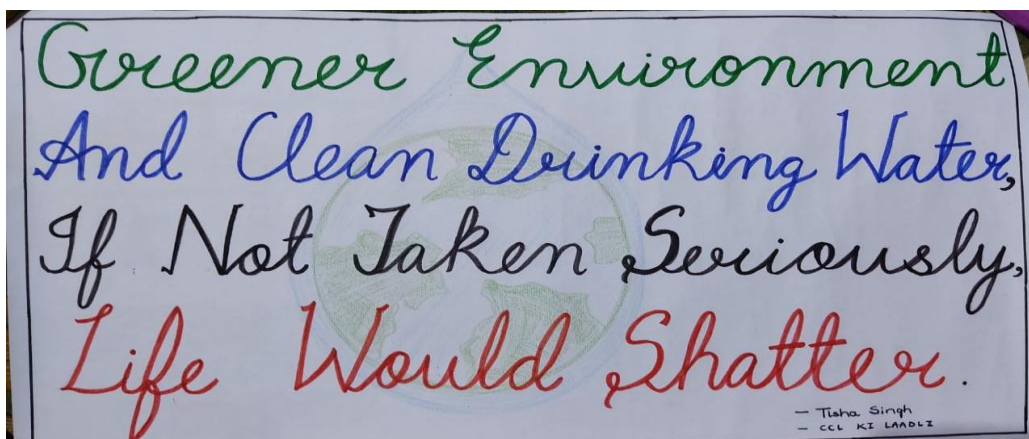 Greener Environment
And Clean Drinking Water,
If Not Taken Seriously,
Life Would Shatter.
– Tisha Singh
– CCL KI LAADLI